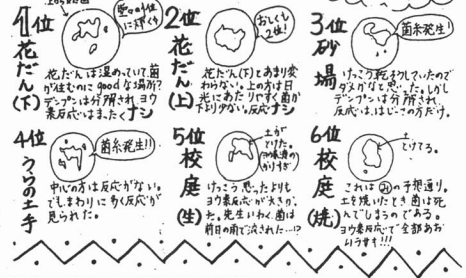 1位
花だん
(下)
堂々の1位
に輝く
花だんは湿めっていて菌
が住むのに goodな場所?
デンプンは分所され、ヨウ
素反応はまったくナシ
2位
花だん
(上)
おしくも
2位!
花だん(下)とあまり変
わらない。上の方は日
光にあたりやすく菌が
下より少ない。反応ナシ
3位
砂場
菌糸発生!
けっこう乾そくしていたので
ダメかなと思った。しかし
デンプンは分所され
反応はほじこの方だけ。
4位
うらの土手
菌糸発生!!
中心の方は反応がない。
でもまわりに多く反応が
見られた。
5位
校庭
(生)
土が
とけてた。
けっこう思ったよりも
ヨウ素反応が大きかっ
た。先生いわく菌は
前日の雨で流された…!?
6位
校庭
(焼)
土
とけてる。
これはみの予想通り。
土を焼いたとき菌は死
んでしまうのである。
ヨウ素反応で全部あお
いろです!!!